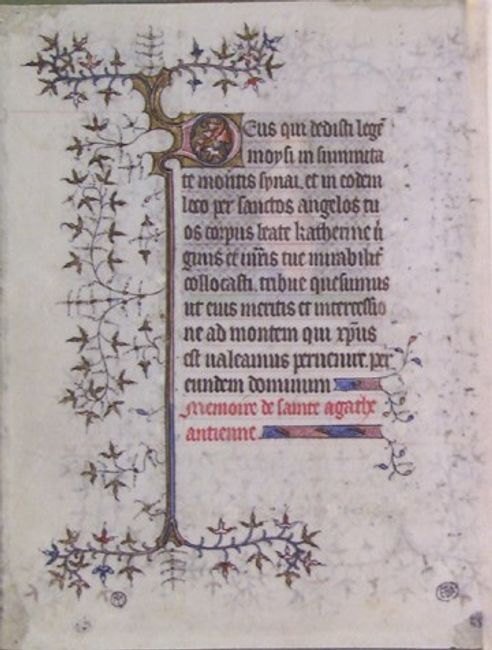 Deus qui dedisti legẽ
moysi in summita
te montis synai. et in eodem
loco per sanctos angelos tu
os corpus beate katherine ũ
ginis et mr̃is tue mirabilit᷑
collocasti. tribue quesumus
ut eius meritis et intercessio
ne ad montem qui xp̃us
est ualeamus peruenire. per
eundem dominum
Memoire de sainte agathe
antienne